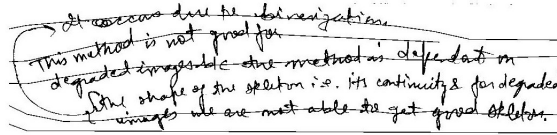 It occurs due to binerization.
This method is not good for
degraded images b/c the method is dependent on
the shape of the skeleton i.e. its continuity & for degraded
images we are not able to get good skeleton.